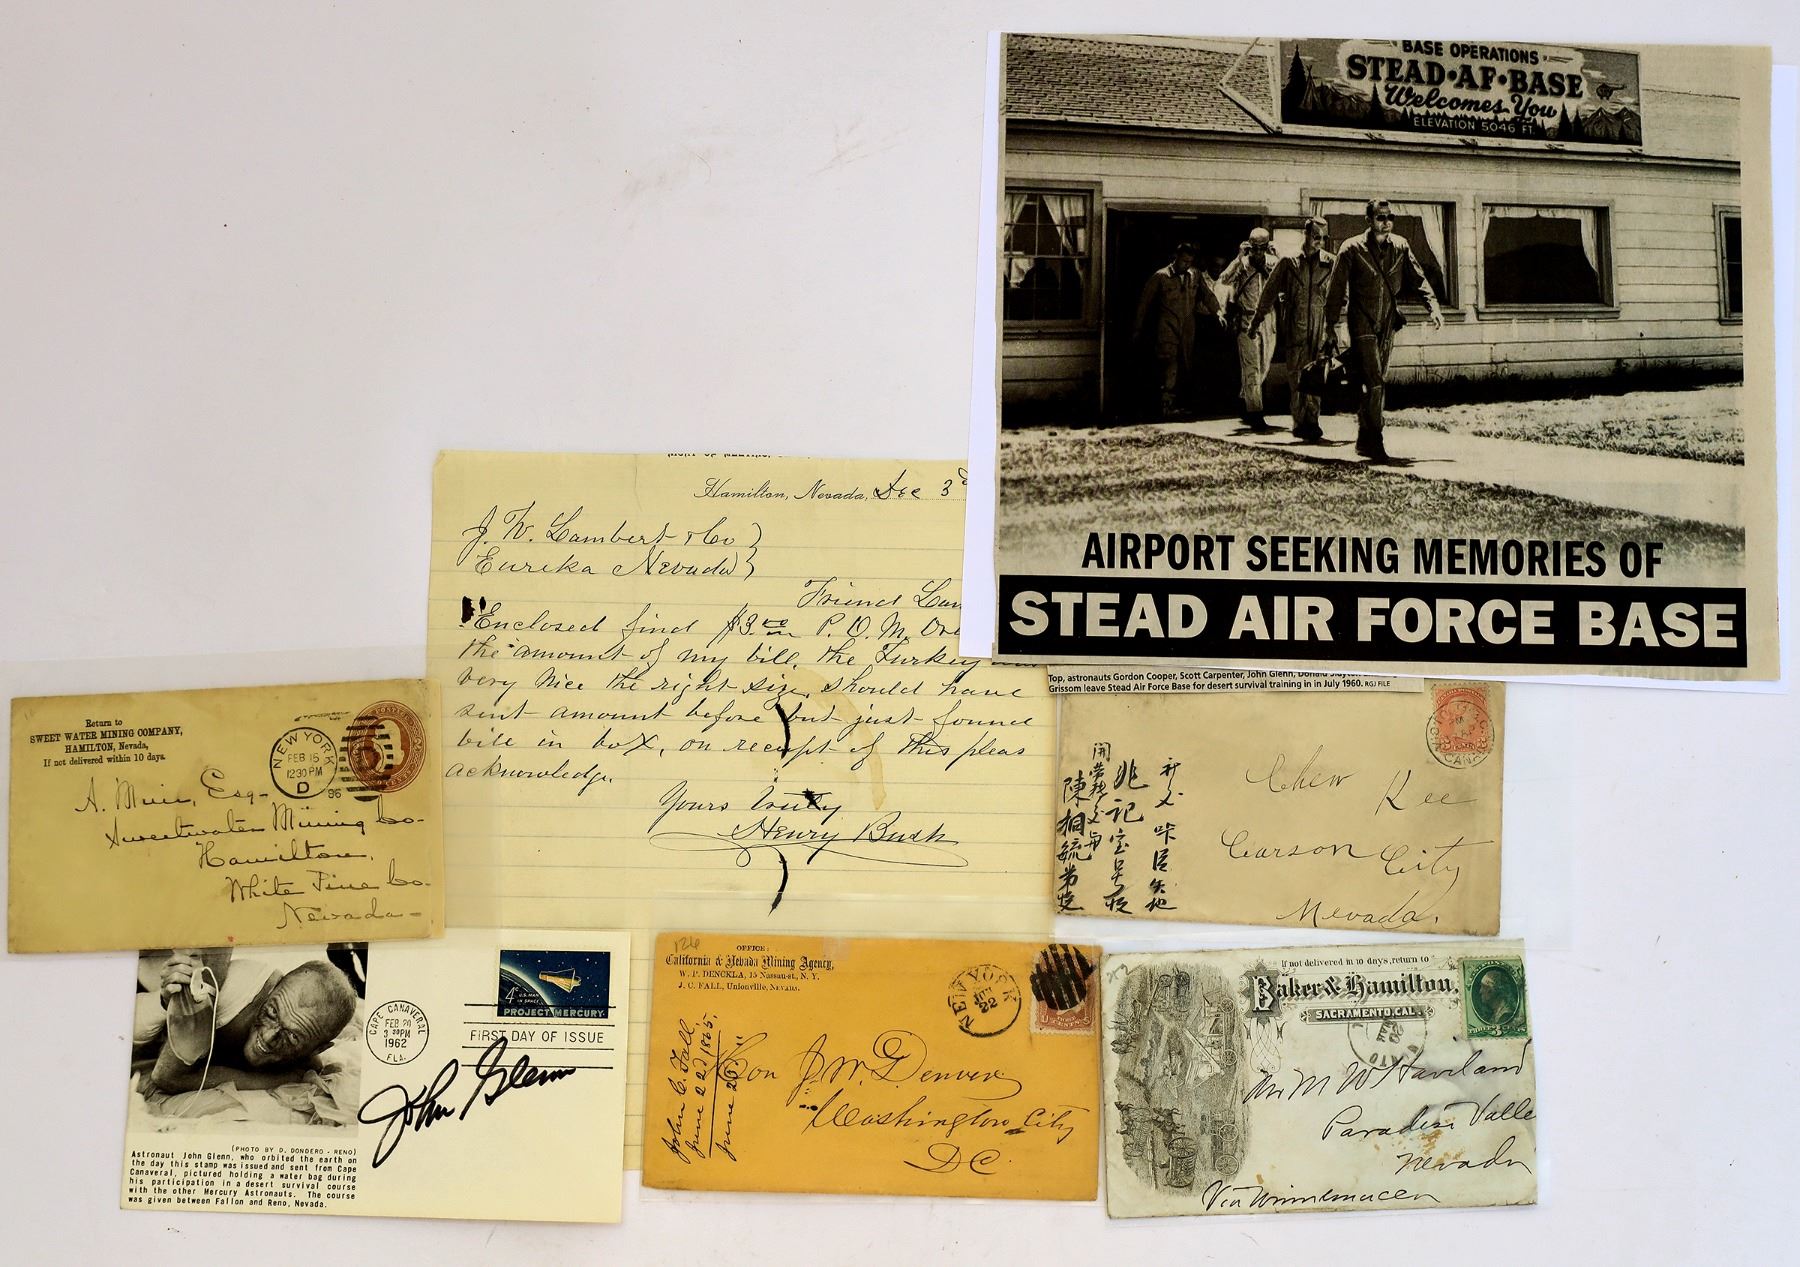 BASE OPERATIONS
STEAD•AF•BASE
Welcomes You
ELEVATION 5046 FT.
AIRPORT SEEKING MEMORIES OF
STEAD AIR FORCE BASE
Top, astronauts Gordon Cooper, Scott Carpenter, John Glenn, Donald Slayton
Grissom leave Stead Air Force Base for desert survival training in in July 1960. RGJ FILE
Hamilton, Nevada, Dec 3d
J. W. Lambert & Co
Eureka Nevada
Friend Lam
Enclosed find $3.00 P. O. M. Ord
the amount of my bill, the Turkey
very nice the right size, should have
sent amount before but just found
bill in box, on receipt of this pleas
acknowledge.
Yours Truly
Henry Bush
Return to
SWEET WATER MINING COMPANY,
HAMILTON, Nevada,
If not delivered within 10 days.
NEW YORK
FEB 15
1230 PM
D
96
A. Muir, Esq-
Sweetwater Mining Co-
Hamilton,
White Pine Co-
Nevada-
CANADA
Chew Kee
Carson City
Nevada.
陳相
兆記宝号收
4¢
U.S. MAN
IN SPACE
PROJECT MERCURY
CAPE CANAVERAL
FEB 20
3 30PM
1962
FLA.
FIRST DAY OF ISSUE
John Glenn
(PHOTO BY D. DONDERO - RENO)
Astronaut John Glenn, who orbited the earth on
the day this stamp was issued and sent from Cape
Canaveral, pictured holding a water bag during
his participation in a desert survival course
with the other Mercury Astronauts. The course
was given between Fallon and Reno, Nevada.
126
OFFICE:
California & Nevada Mining Agency,
W. P. DENCKLA, 15 Nassau-st., N. Y.
J. C. FALL, Unionville, NEVADA.
NEW YORK
JUN
22
John C. Fall
June 22d 1865
June 23
Hon J. W. Denver
Washington City
DC.
If not delivered in 10 days, return to
Baker & Hamilton,
SACRAMENTO, CAL.
Mr M W Haviland
Paradise Valle
Nevada
Via Winnemucca